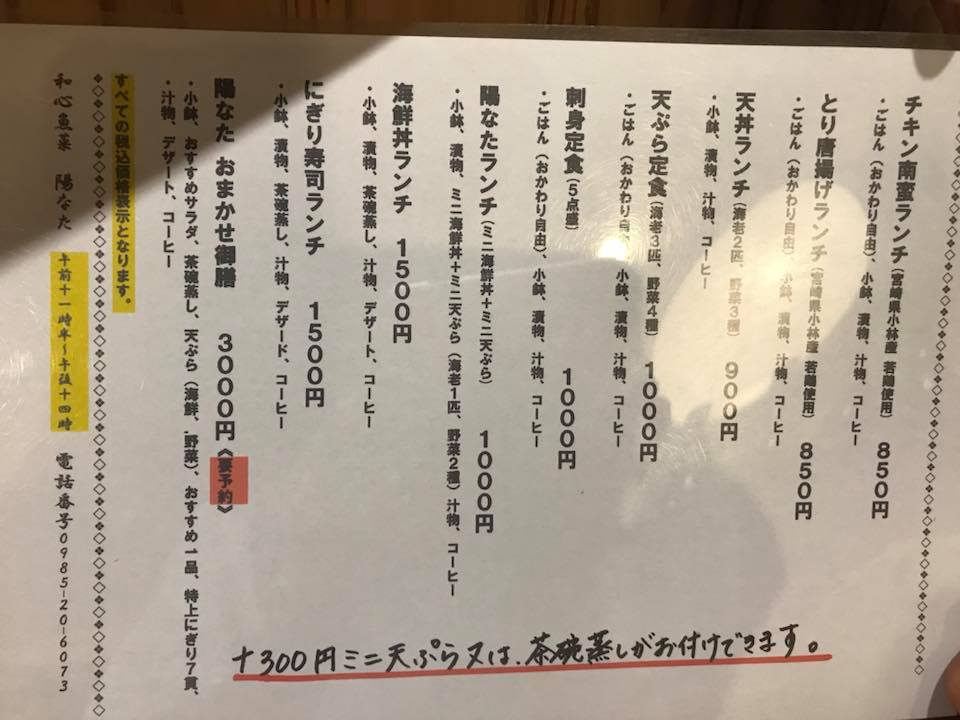 チキン南蛮ランチ（宮崎県小林産 若鶏使用） 850円
・ごはん（おかわり自由）、小鉢、漬物、汁物、コーヒー
とり唐揚げランチ（宮崎県小林産 若鶏使用） 850円
・ごはん（おかわり自由）、小鉢、漬物、汁物、コーヒー
天丼ランチ（海老2匹、野菜3種） 900円
・小鉢、漬物、汁物、コーヒー
天ぷら定食（海老3匹、野菜4種） 1000円
・ごはん（おかわり自由）、小鉢、漬物、汁物、コーヒー
刺身定食（5点盛） 1000円
・ごはん（おかわり自由）、小鉢、漬物、汁物、コーヒー
陽なたランチ（ミニ海鮮丼＋ミニ天ぷら） 1000円
・小鉢、漬物、ミニ海鮮丼＋ミニ天ぷら（海老1匹、野菜2種）汁物、コーヒー
海鮮丼ランチ 1500円
・小鉢、漬物、茶碗蒸し、汁物、デザート、コーヒー
にぎり寿司ランチ 1500円
・小鉢、漬物、茶碗蒸し、汁物、デザード、コーヒー
陽なた おまかせ御膳 3000円《要予約》
・小鉢、おすすめサラダ、茶碗蒸し、天ぷら（海鮮、野菜）、おすすめ一品、特上にぎり7貫、
・汁物、デザート、コーヒー
すべての税込価格表示となります。
和心魚菜 陽なた 午前十一時半～午後十四時 電話番号0985-20-6073
+300円ミニ天ぷら又は、茶碗蒸しがお付けできます。